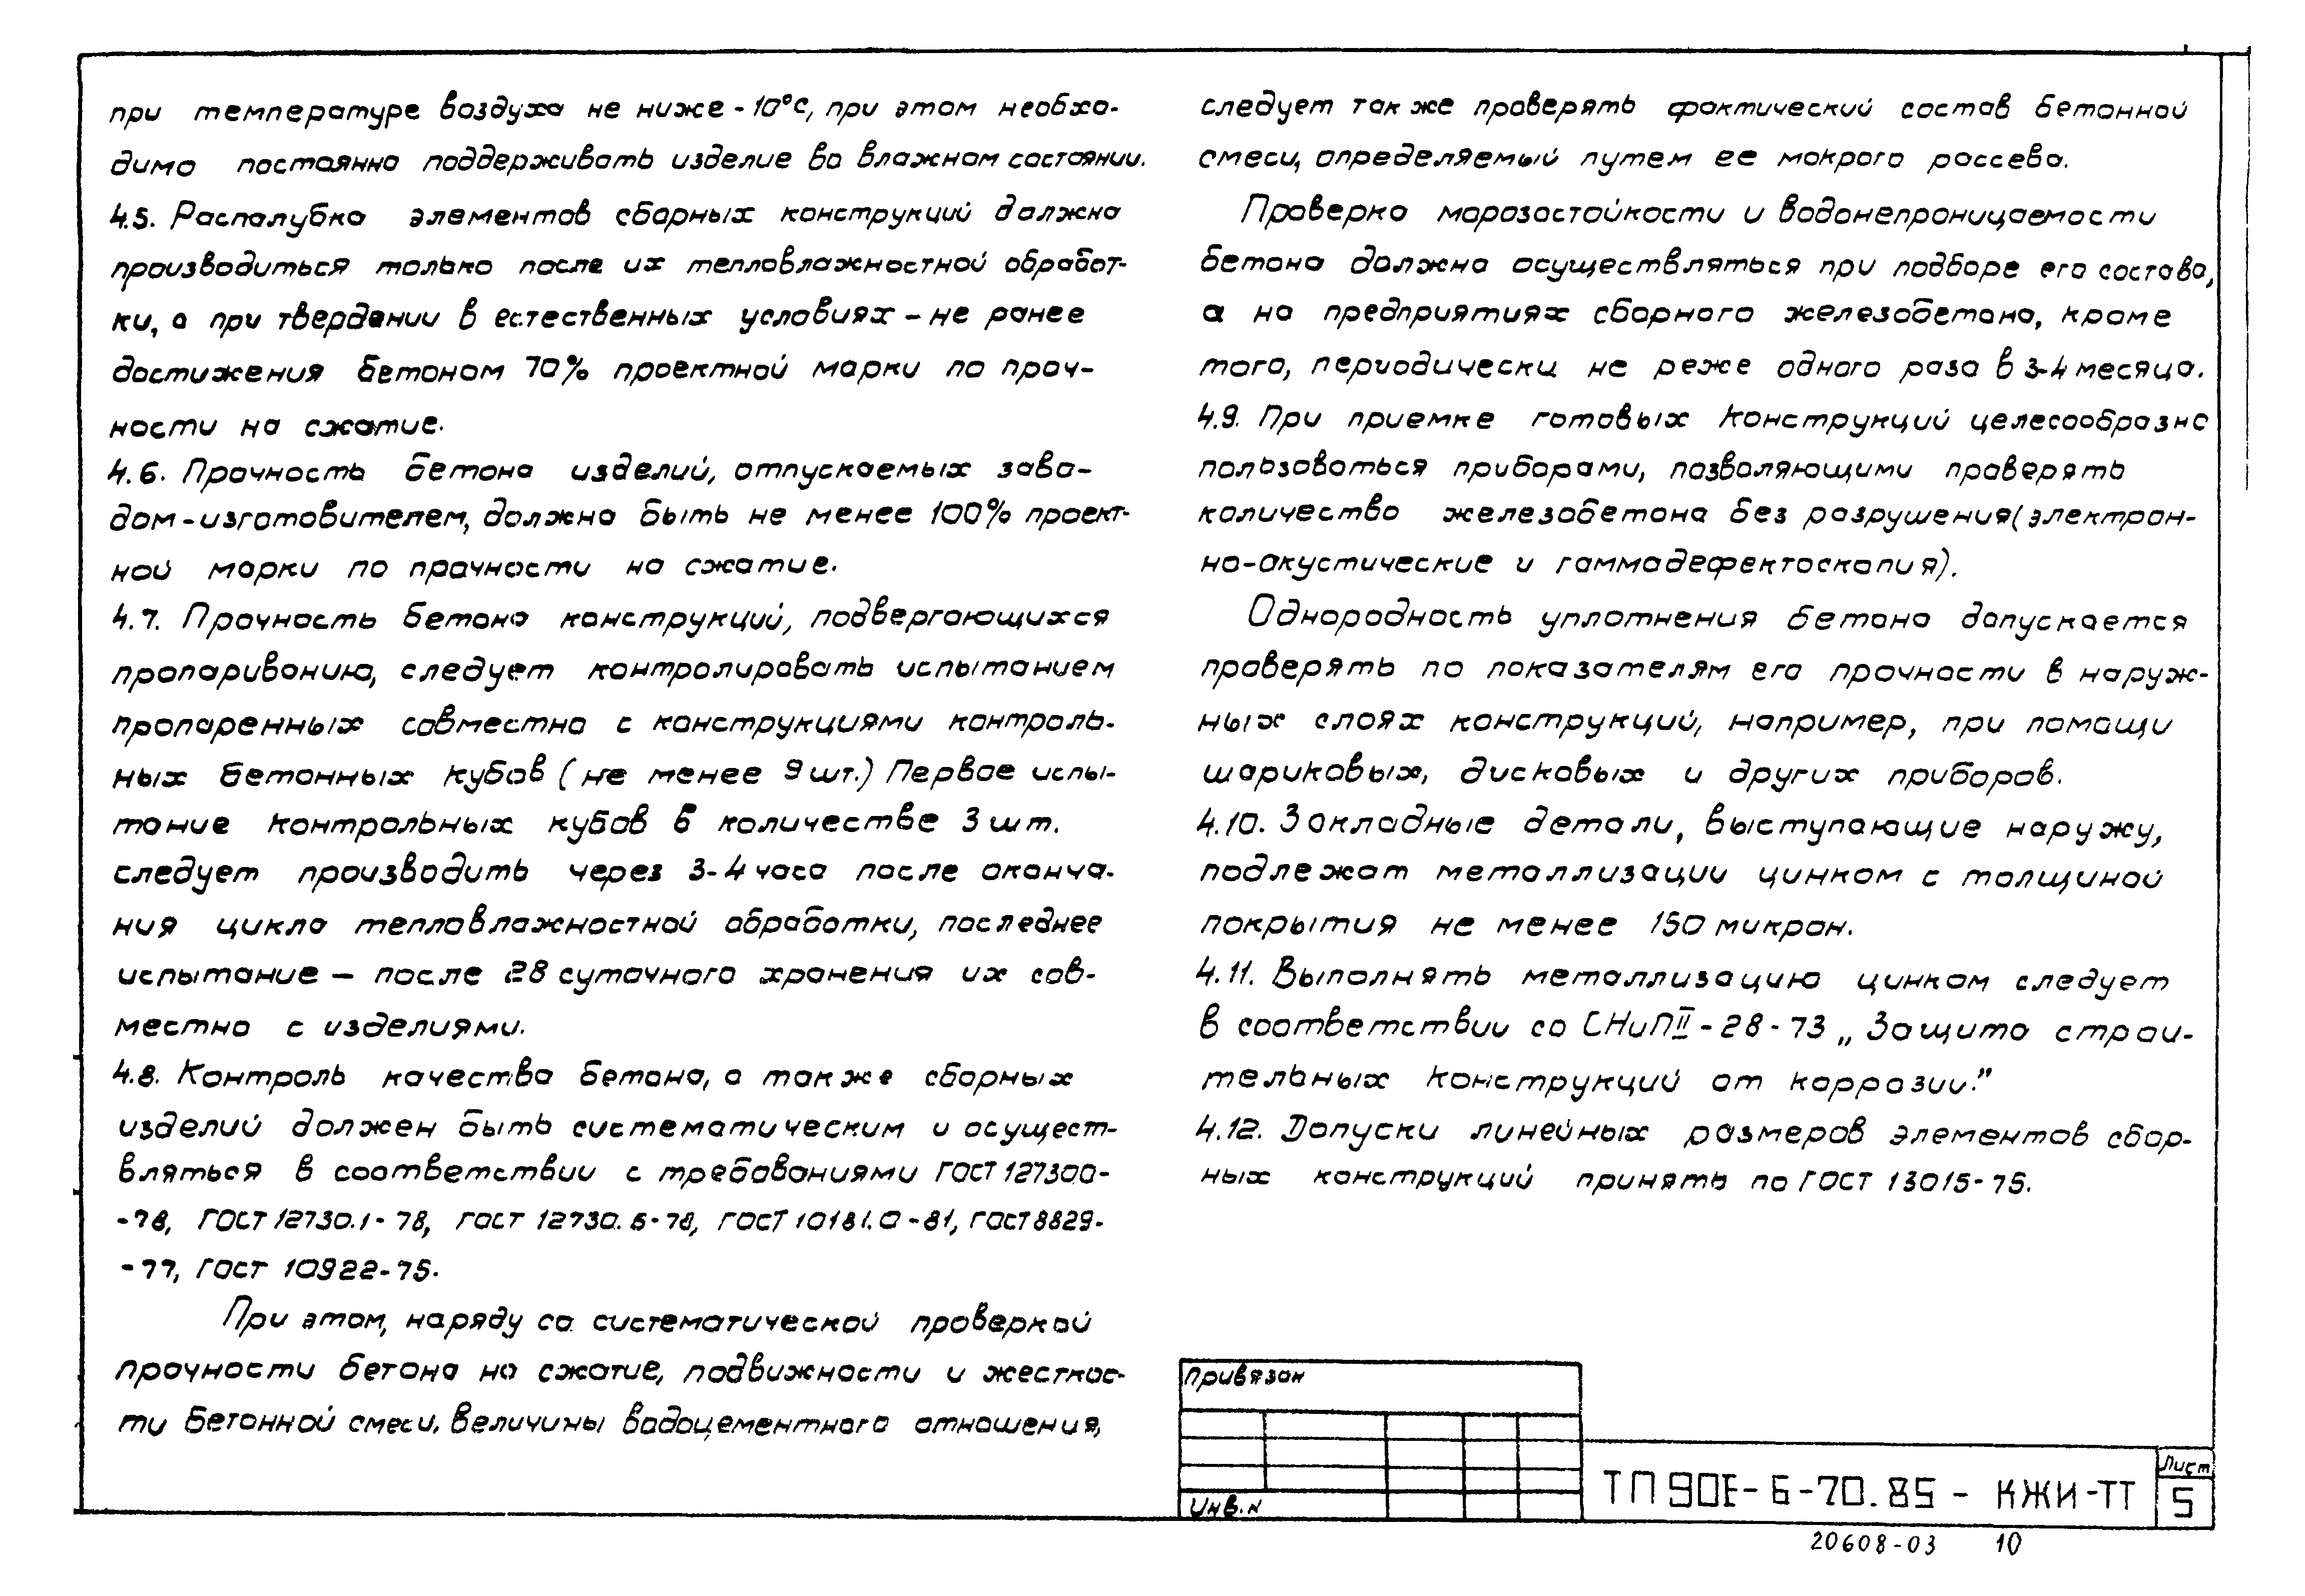 при температуре воздуха не ниже -10°С, при этом необхо-
димо постоянно поддерживать изделие во влажном состоянии.
4.5. Распалубка элементов сборных конструкций должна
производиться только после их тепловлажностной обработ-
ки, а при твердении в естественных условиях - не ранее
достижения бетоном 70% проектной марки по проч-
ности на сжатие.
4.6. Прочность бетона изделий, отпускаемых заво-
дом-изготовителем, должна быть не менее 100% проект-
ной марки по прочности на сжатие.
4.7. Прочность бетона конструкций, подвергающихся
пропариванию, следует контролировать испытанием
пропаренных совместно с конструкциями контроль-
ных бетонных кубов (не менее 9 шт.) Первое испы-
тание контрольных кубов в количестве 3 шт.
следует производить через 3-4 часа после оконча-
ния цикла тепловлажностной обработки, последнее
испытание — после 28 суточного хранения их сов-
местно с изделиями.
4.8. Контроль качества бетона, а также сборных
изделий должен быть систематическим и осущест-
вляться в соответствии с требованиями ГОСТ 12730.0-
-78, ГОСТ 12730.1-78, ГОСТ 12730.5-78, ГОСТ 10181.0-81, ГОСТ 8829-
-77, ГОСТ 10922-75.
При этом, наряду со систематической проверкой
прочности бетона на сжатие, подвижности и жесткос-
ти бетонной смеси, величины водоцементного отношения,
следует также проверять фактический состав бетонной
смеси, определяемый путем ее мокрого рассева.
Проверка морозостойкости и водонепроницаемости
бетона должна осуществляться при подборе его состава,
а на предприятиях сборного железобетона, кроме
того, периодически не реже одного раза в 3-4 месяца.
4.9. При приемке готовых конструкций целесообразно
пользоваться приборами, позволяющими проверять
количество железобетона без разрушения (электрон-
но-акустические и гаммадефектоскопия).
Однородность уплотнения бетона допускается
проверять по показателям его прочности в наруж-
ных слоях конструкций, например, при помощи
шариковых, дисковых и других приборов.
4.10. Закладные детали, выступающие наружу,
подлежат металлизации цинком с толщиной
покрытия не менее 150 микрон.
4.11. Выполнять металлизацию цинком следует
в соответствии со СНиП II-28-73 „Защита строи-
тельных конструкций от коррозии."
4.12. Допуски линейных размеров элементов сбор-
ных конструкций принять по ГОСТ 13015-75.
Привязан
Инв. N
ТП 90Е-6-70.85 - КЖИ-ТТ
Лист
5
20608-03 10